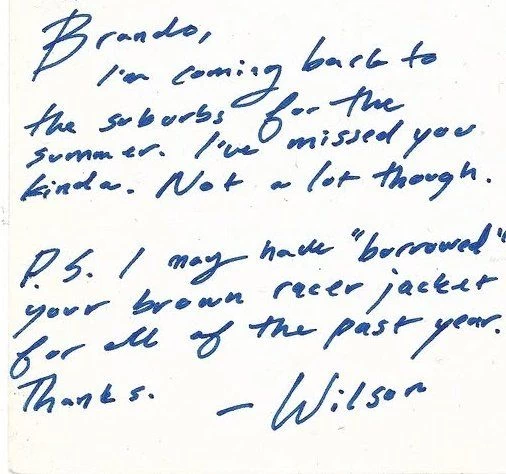 Brando,
I'm coming back to
the suburbs for the
summer. I've missed you
kinda. Not a lot though.
P.S. I may have "borrowed"
your brown racer jacket
for all of the past year.
Thanks.
- Wilson